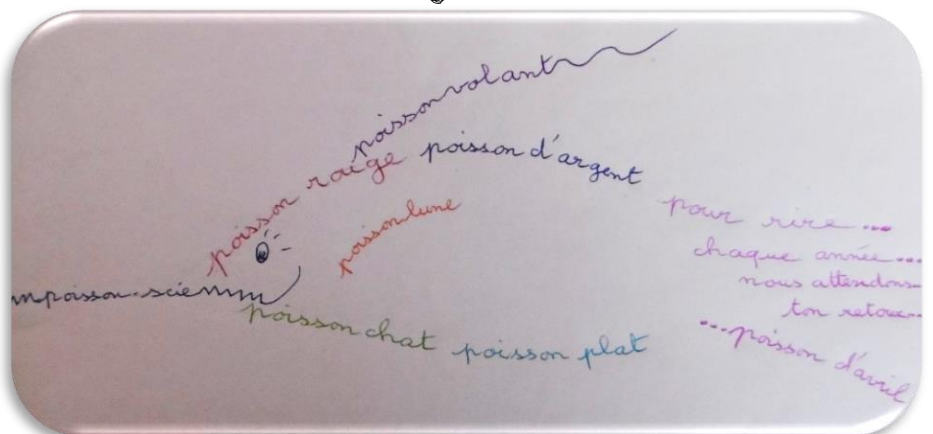 poisson volant
poisson rouge
poisson d'argent
poisson lune
poisson-scie
poisson chat
poisson plat
pour rire...
chaque année...
nous attendons
ton retour...
...poisson d'avril